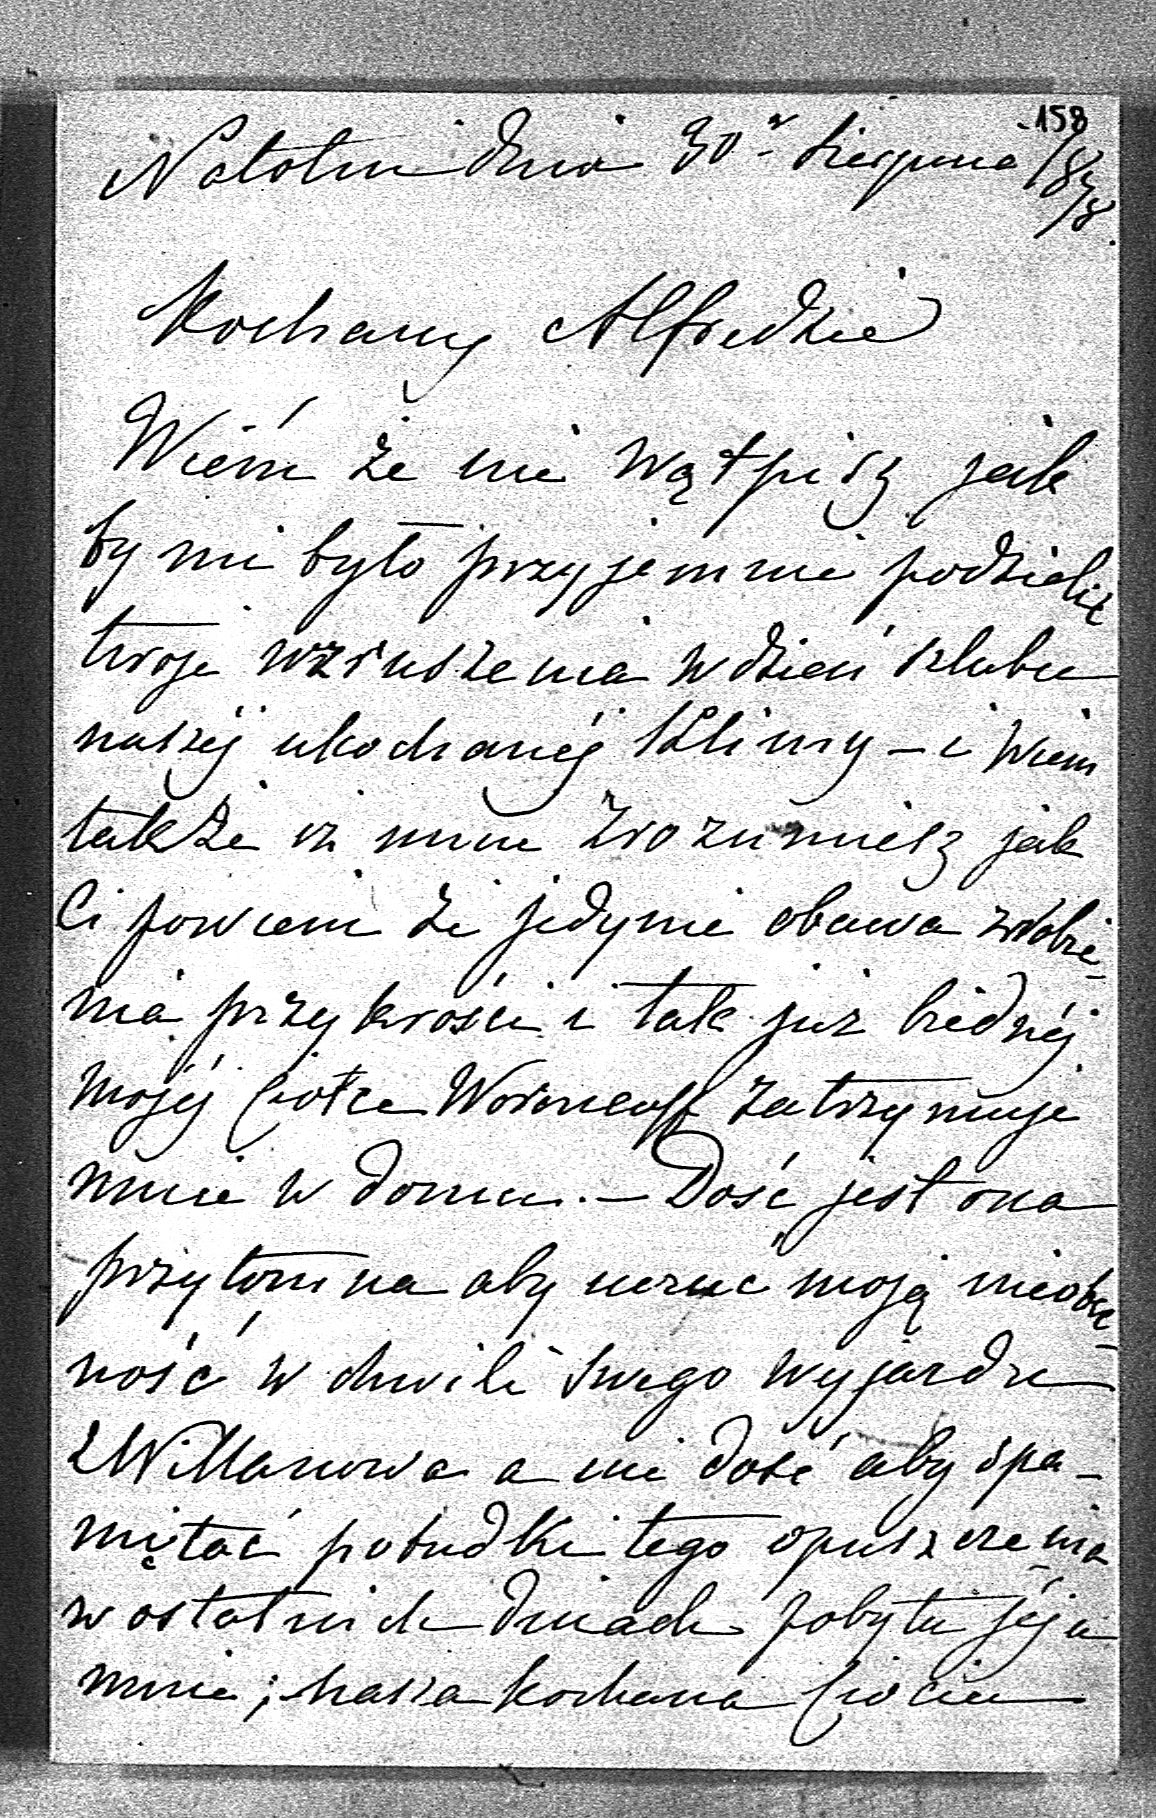 158
Natolin dnia 30º Sierpnia 1878.
Kochany Alfredzie
Wiém że nie wątpisz jak
by mi było przyjemnie podzielić
twoje wzruszenia w dzień slubu
naszéj ukochanéj Klimy – i wiem
także iż mnie zrozumiesz jak
Ci powiem że jedynie obawa zrobie-
nia przykrości i tak już biednéj
mojéj Ciotce Woronzoff zatrzymuje
mnie w domu. – Dość jest ona
przytomna aby uczuć moją nieobe-
ność w chwili swego wyjazdu
z Willanowa a nie dość aby spa-
miętać pobudki tego opuszczenia
w ostatnich dniach pobytu jéj u
mnie; nasza kochana Ciocia